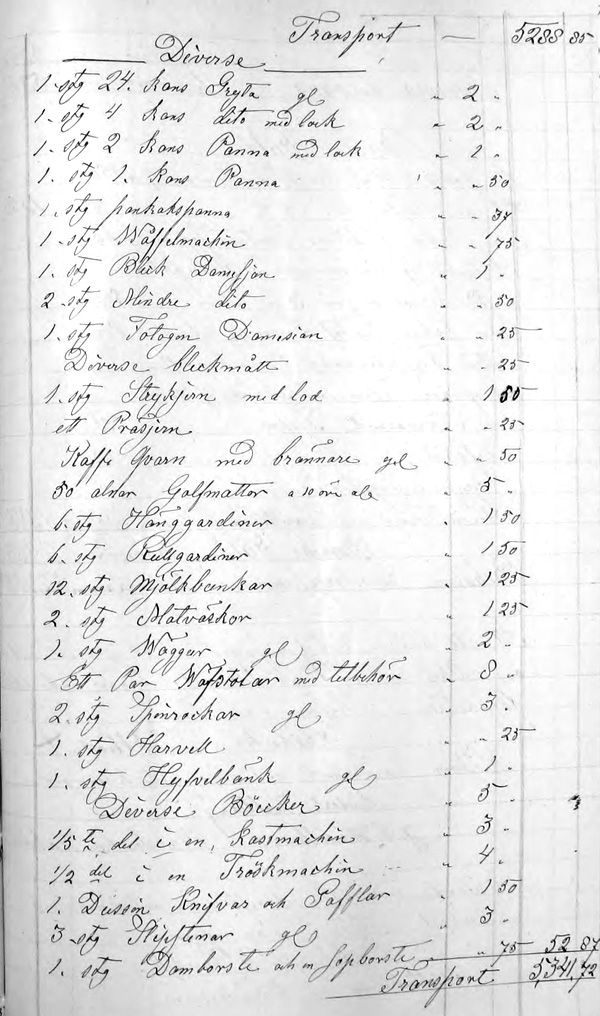 Transport — 5288 85
Diverse
1. stg 24. kans Gryta gl " 2 "
1. stg 4 kans dito med lock " 2 "
1. stg 2 kans Panna med lock " 1 "
1. stg 1. kans Panna " " 50
1. stg pankakspanna " " 37
1. stg Waffelmachin " " 75
1. stg Bleck Damesjan " 1 "
2. stg Mindre dito " " 50
1. stg Fotogen Damesian " " 25
Diverse bleckmått " " 25
1. stg Strykjern med lod " 1 50
ett Präsjern " " 25
Kaffe Qvarn med brännare gl " " 50
50 alnar Golfmattor a 10 öre aln " 5 "
6. stg Hänggardiner " 1 50
6. stg Rullgardiner " 1 50
12. stg Mjölkbunkar " 1 25
2. stg Matväskor " 1 25
1. stg Waggur gl " 2 "
Ett Par Wäfstolar med tilbehör " 8 "
2. stg Spinrockar gl " 3 "
1. stg Harvell " " 25
1. stg Hyfvelbänk gl " 1 "
Diverse Böcker " 5 "
1/5 te del i en, kastmachin " 3 "
1/2 del i en Tröskmachin " 4 "
1. Dussin Knifvar och Gafflar " 1 50
3. stg gl " 3 "
1. stg Damborste och en sopborste " 75 52 87
Transport 5,341,72